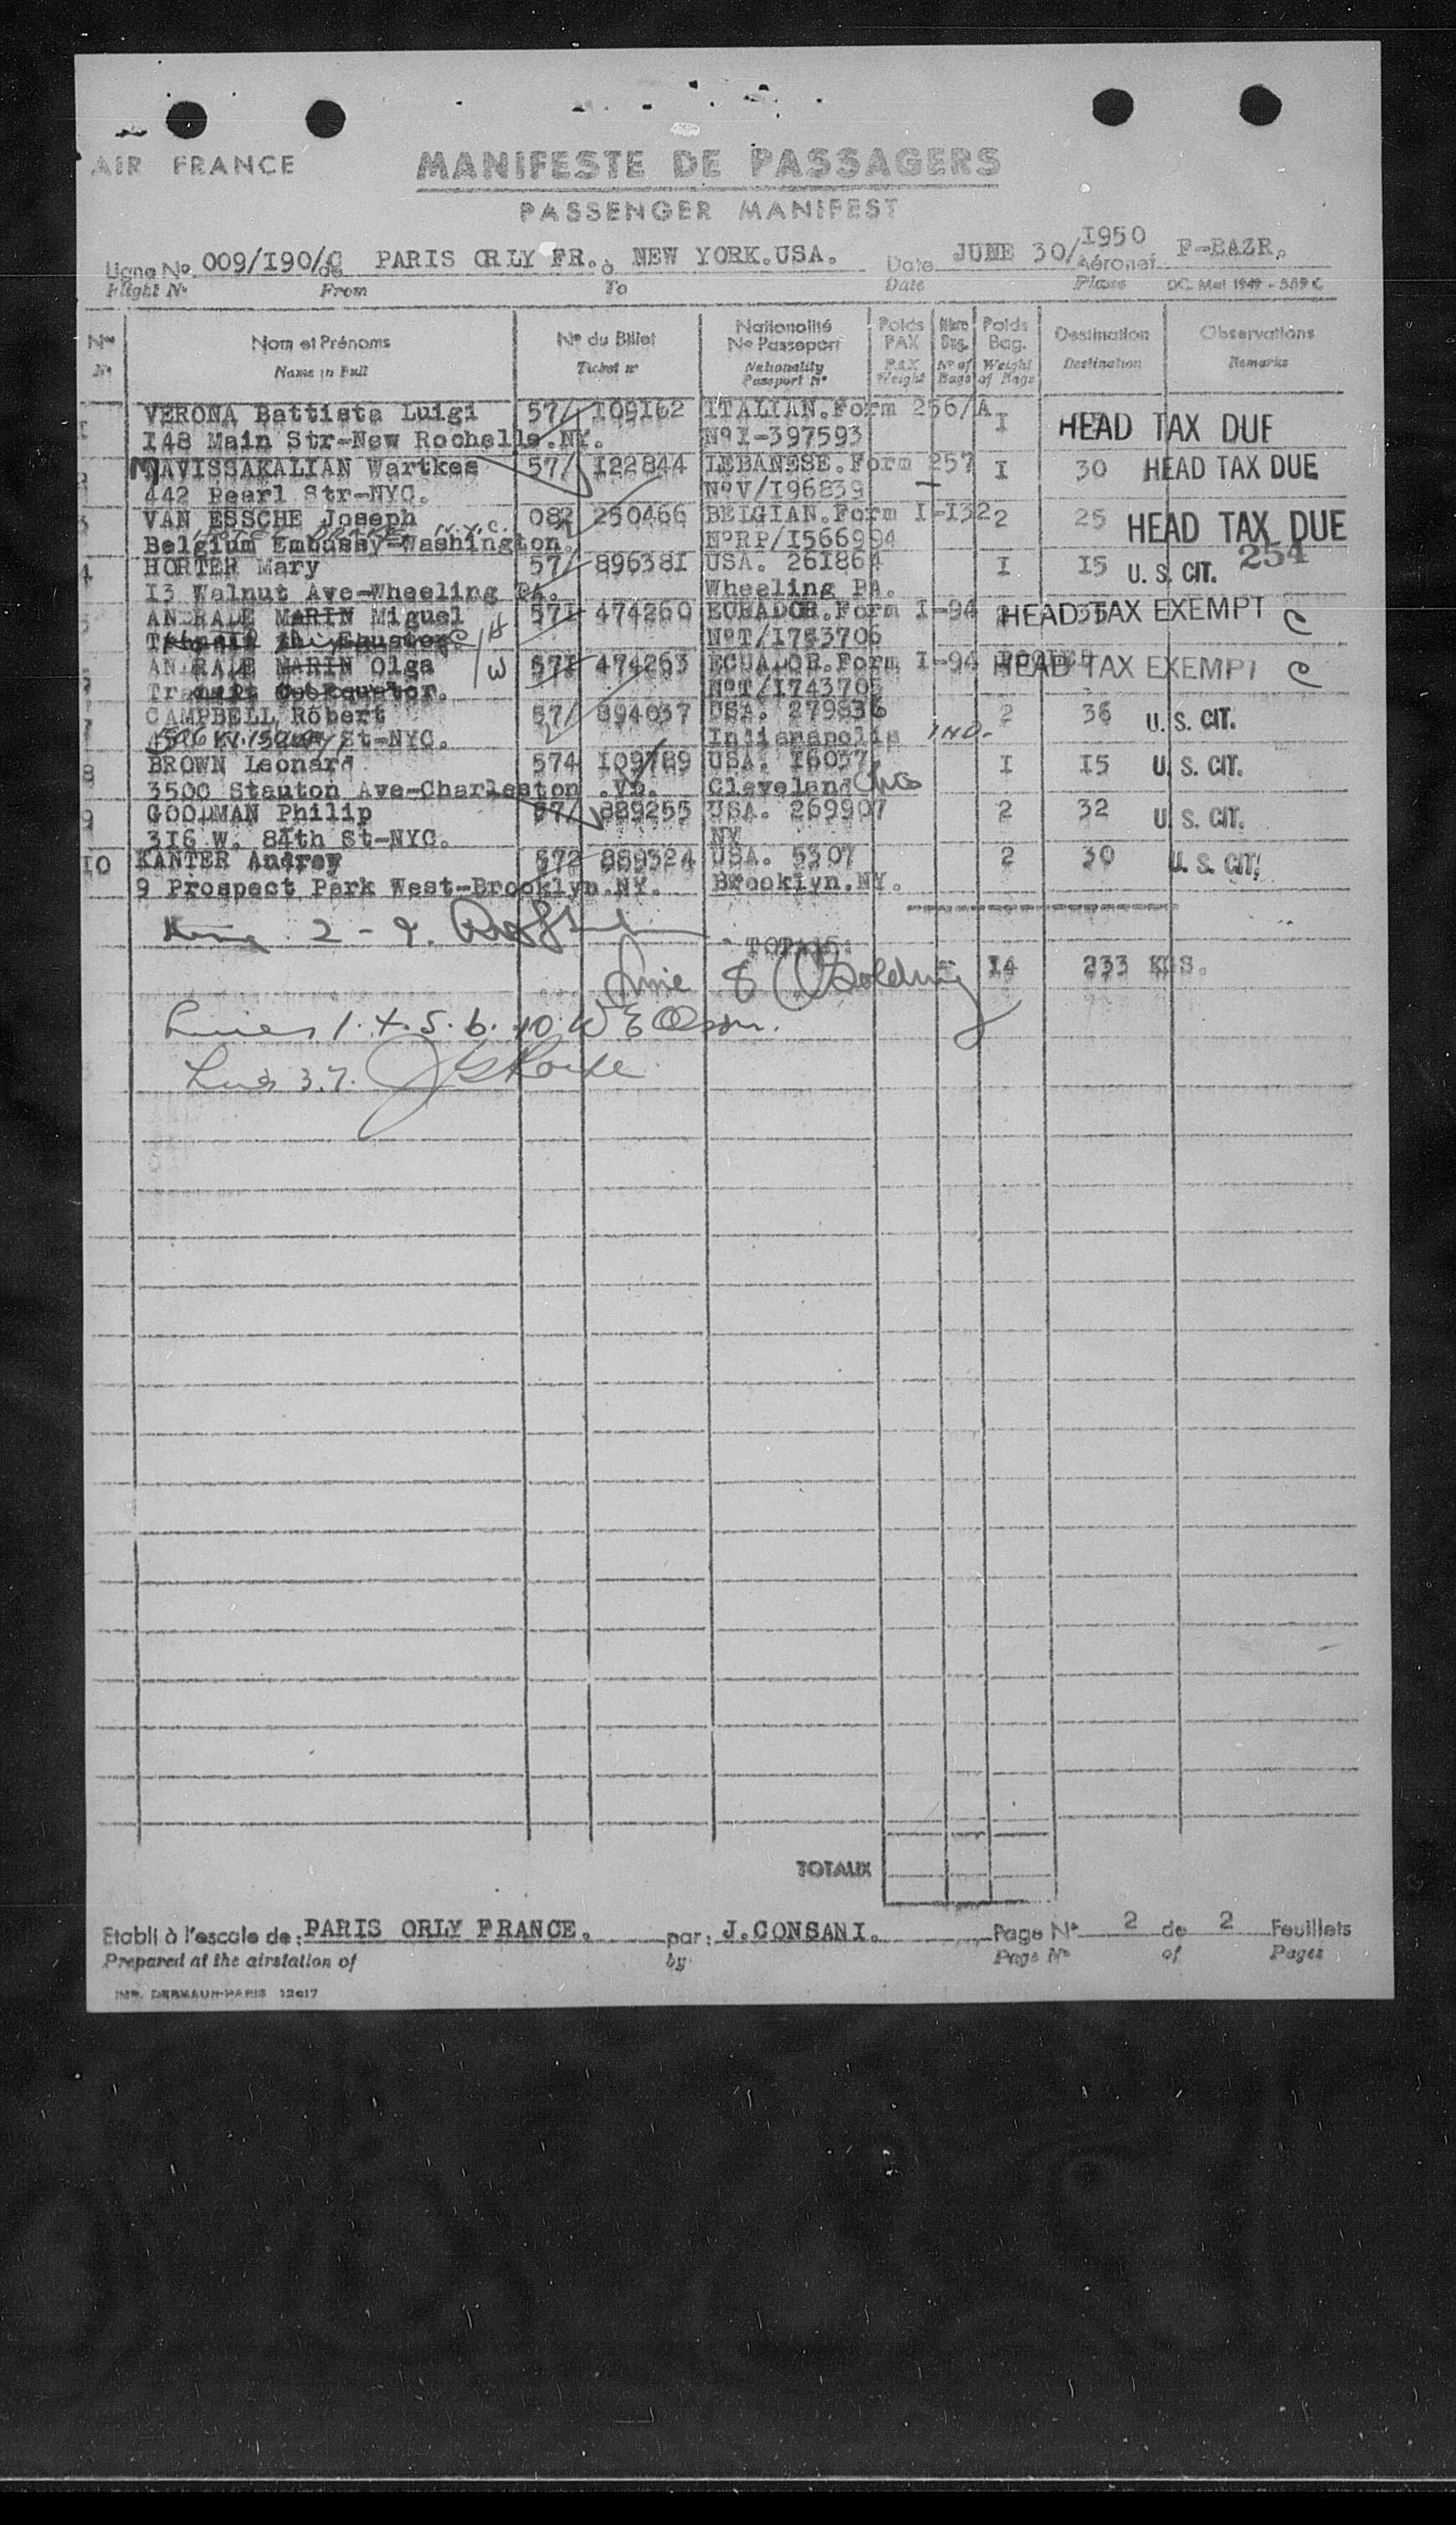 AIR FRANCE
MANIFESTE DE PASSAGERS
PASSENGER MANIFEST
Ligne No. 009/I90/C de PARIS ORLY FR. à NEW YORK.USA. Date JUNE 30/1950 Aéronef F-BAZR.
Flight No From To Date Plane DC. Mai 1949 - 589 C
Nos Nom et Prénoms No du Billet Nationalité No Passeport Poids PAX Nbre Bag. Poids Bag. Destination Observations
No Name in Full Ticket no Nationality Passport No PAX Weight No of Bags Weight of Bags Destination Remarks
VERONA Battista Luigi 57/ 109162 ITALIAN.Form 256/A I HEAD TAX DUE
I48 Main Str-New Rochelle.NY. NoI-397593
TAVISSAKALIAN Wartkes 57/ I22844 LEBANESE.Form 257 I 30 HEAD TAX DUE
442 Pearl Str-NYC. NoV/I96839
3 VAN ESSCHE Joseph 082 250466 BELGIAN.Form I-I32 2 25 HEAD TAX DUE
N.Y.C.
Belgium Embassy-Washington. NoRP/I566994 254
4 HORTER Mary 57/ 896381 USA. 261864 I I5 U. S. CIT.
I3 Walnut Ave-Wheeling PA. Wheeling PA.
5 ANDRADE MARIN Miguel 57I 474260 ECUADOR.Form I-94 HEAD TAX EXEMPT C
H NoT/I743706
ANDRADE MARIN Olga 57I 474263 ECUADOR.Form I-94 HEAD TAX EXEMPT C
W NoT/I743705
7 CAMPBELL Robert 57/ 894037 USA. 279836 2 36 U. S. CIT.
St-NYC. Indianapolis IND.
8 BROWN Leonard 574 I09789 USA. I6037 I I5 U. S. CIT.
3500 Stauton Ave-Charleston .VA. Cleveland Ohio
9 GOODMAN Philip 57/ 889255 USA. 269907 2 32 U. S. CIT.
3I6 W. 84th St-NYC. NY
I0 KANTER Audrey 572 889324 USA. 5307 2 30 U. S. CIT.
9 Prospect Park West-Brooklyn.NY. Brooklyn.NY.
2 - 9.
TOTALS: I4 233 KGS.
Line 8 Golding
Lines 1. 4. 5. 6. 10. W E Olson.
Lines 3.7.
TOTAUX
Etabli à l'escale de: PARIS ORLY FRANCE. par: J.CONSANI. Page No 2 de 2 Feuillets
Prepared at the airstation of by Page No of Pages
IMP. DERMAUN-PARIS 12617